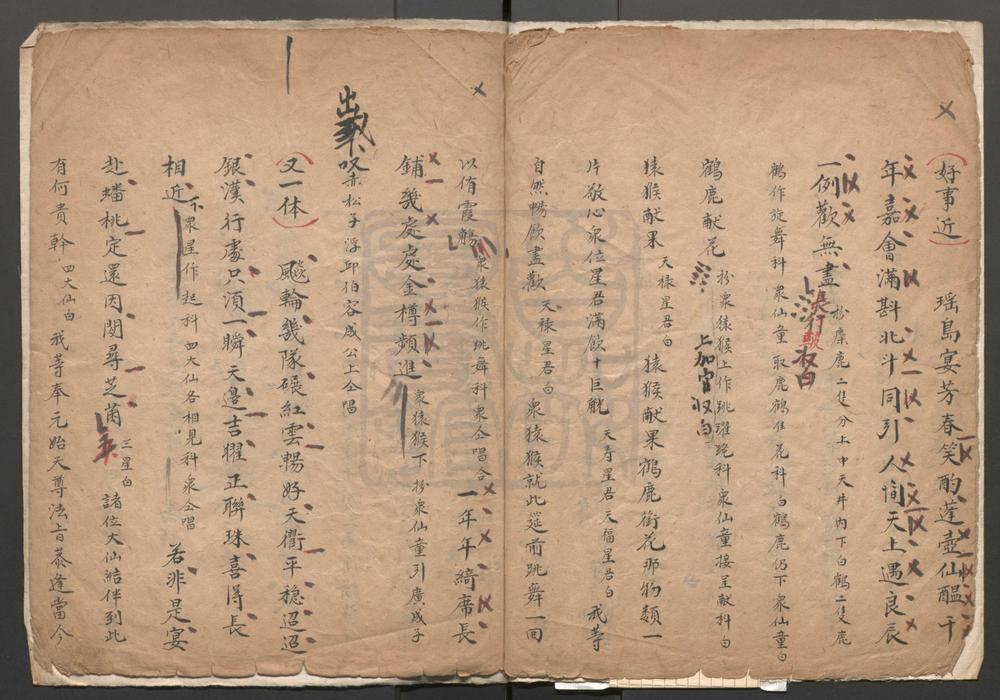 好事近 瑤島宴芳春笑酌蓬壺仙醞千
年嘉會滿斟北斗同引人間天上遇良辰
一例歡無盡 扮麋鹿二隻分上中天井內下白鶴二隻鹿
鶴作旋舞科 衆仙童取鹿鶴住 花科 白鶴鹿仍下 衆仙童白
鶴鹿献花 扮衆猿猴上作跳躍科衆仙童接呈献科白
上加官収白
猿猴献果 天禄星君白 猿猴献果鶴鹿銜花那物類一
片敬心衆位星君滿飲十巨觥 天寿星君天福星君白 我等
自然暢飲盡歡 天禄星君白 衆猿猴就此筵前跳舞一回
以侑霞觴 衆猿猴作跳舞科衆仝唱合 一年年綺席長
鋪幾處處金樽頻進 衆猿猴下扮衆仙童引廣成子
赤松子浮邱伯容成公上仝唱
又一体 飈輪幾隊碾紅雲暢好天衢平穏迢迢
銀漢行處只湏一瞬天邉吉曜正聯珠喜得長
相近 下衆星作起科四大仙各相見科衆仝唱 若非是宴
赴蟠桃定還因閒尋芝菌 三星白 諸位大仙結伴到此
有何貴幹 四大仙白 我等奉元始天尊法旨恭逢當今